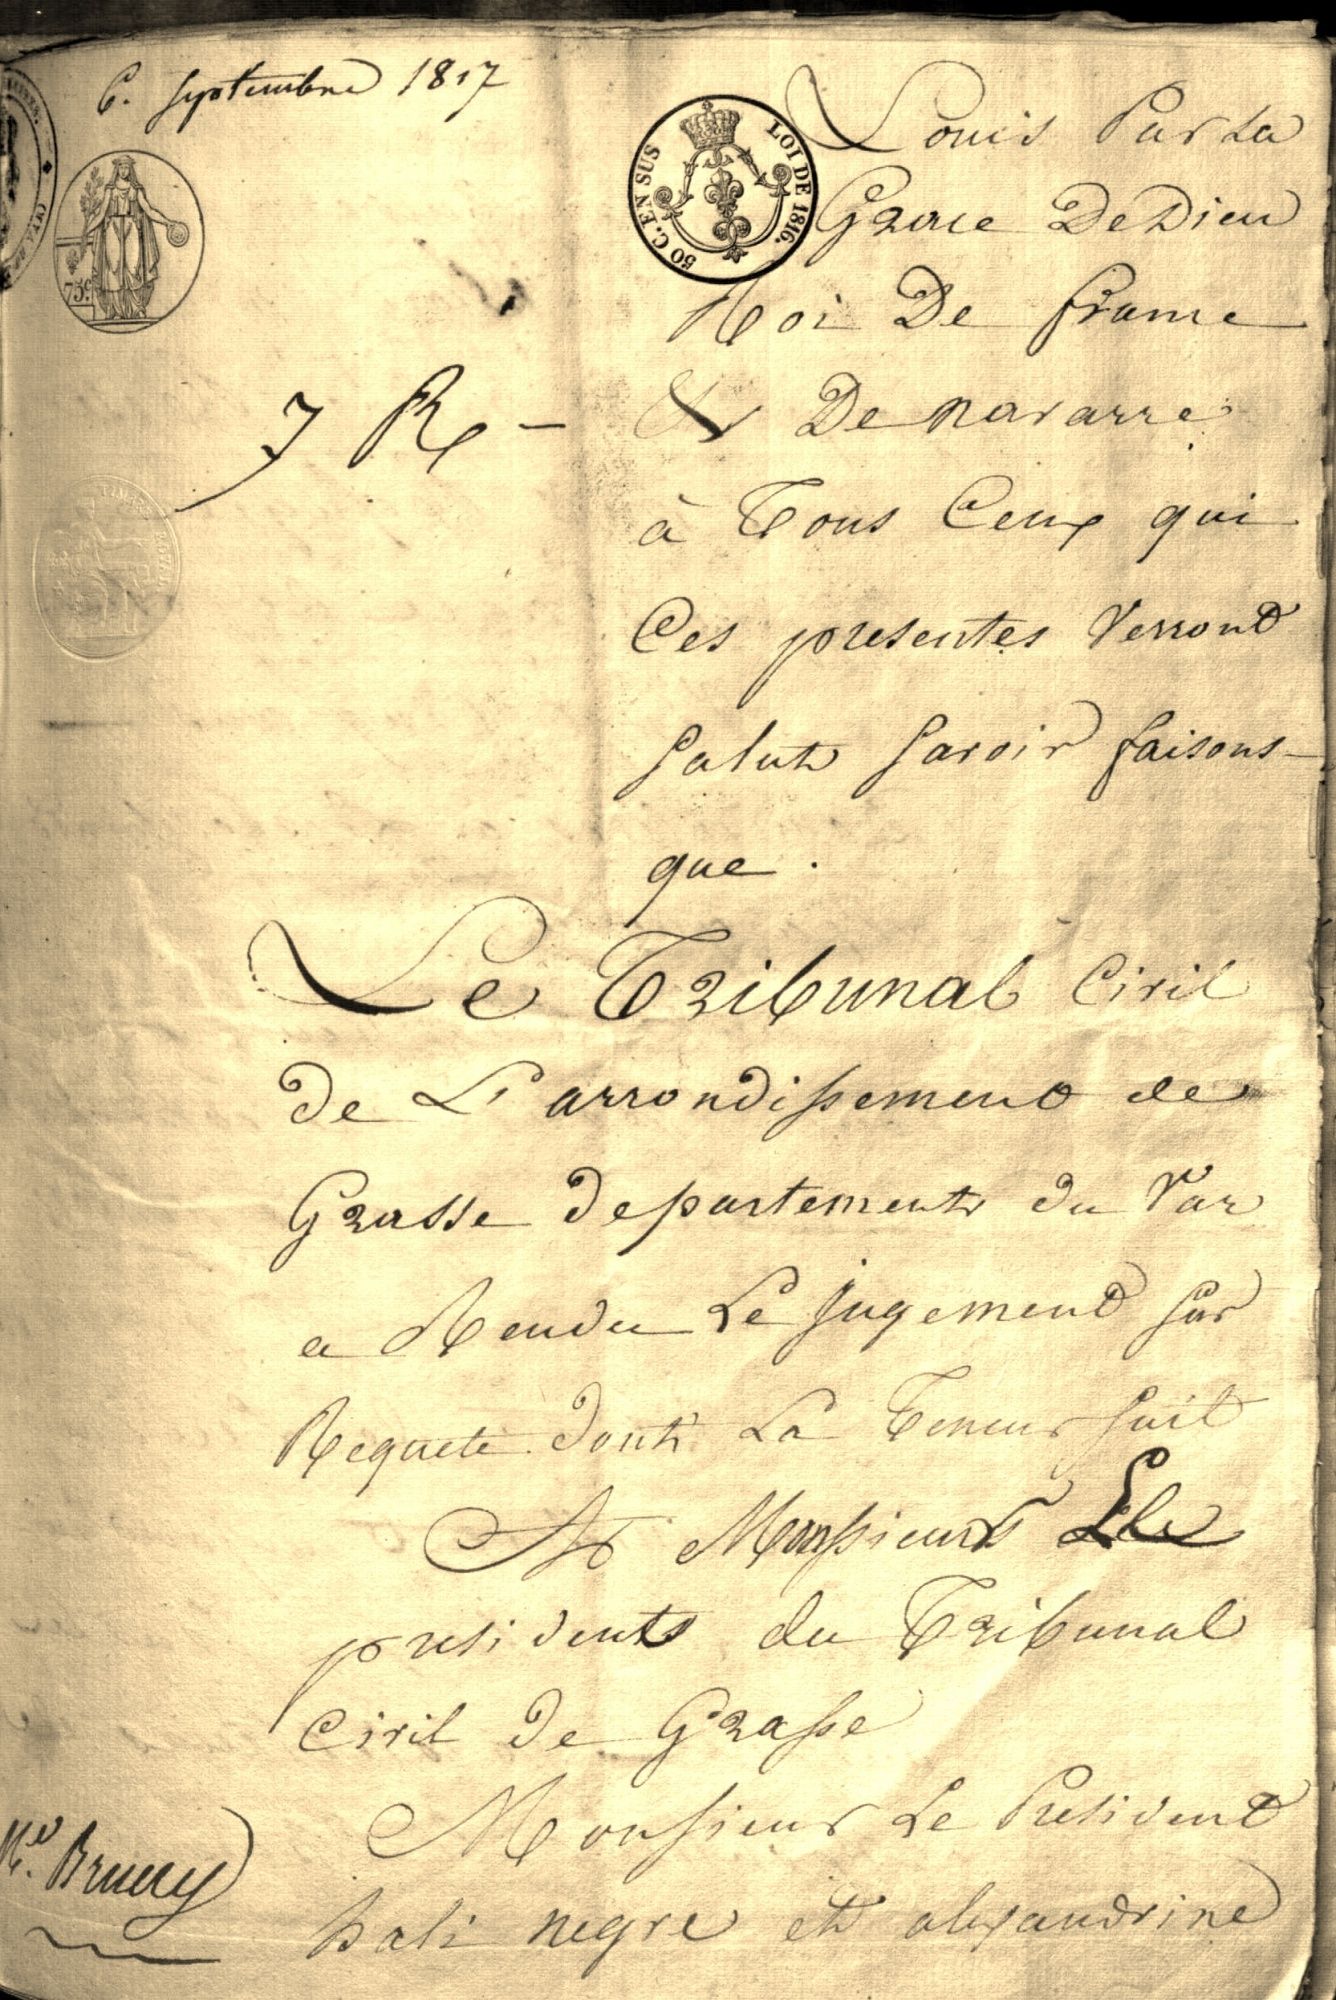 6. septembre 1817
50 C. EN SUS
LOI DE 1816.
75c
7 R -
Louis Par La
Grace De Dieu
Roi De france
Et De navarre
à Tous Ceux qui
Ces presentes Verront
Salut Savoir faisons
que.
Le Tribunal Civil
de L'arrondissement de
Grasse departement du Var
a Rendu Le jugement sur
Requete dont La Teneur suit
A Messieurs Les
presidents du Tribunal
Civil de Grasse
Monsieur Le President
Me. Bruery
hali negre et alexandrine